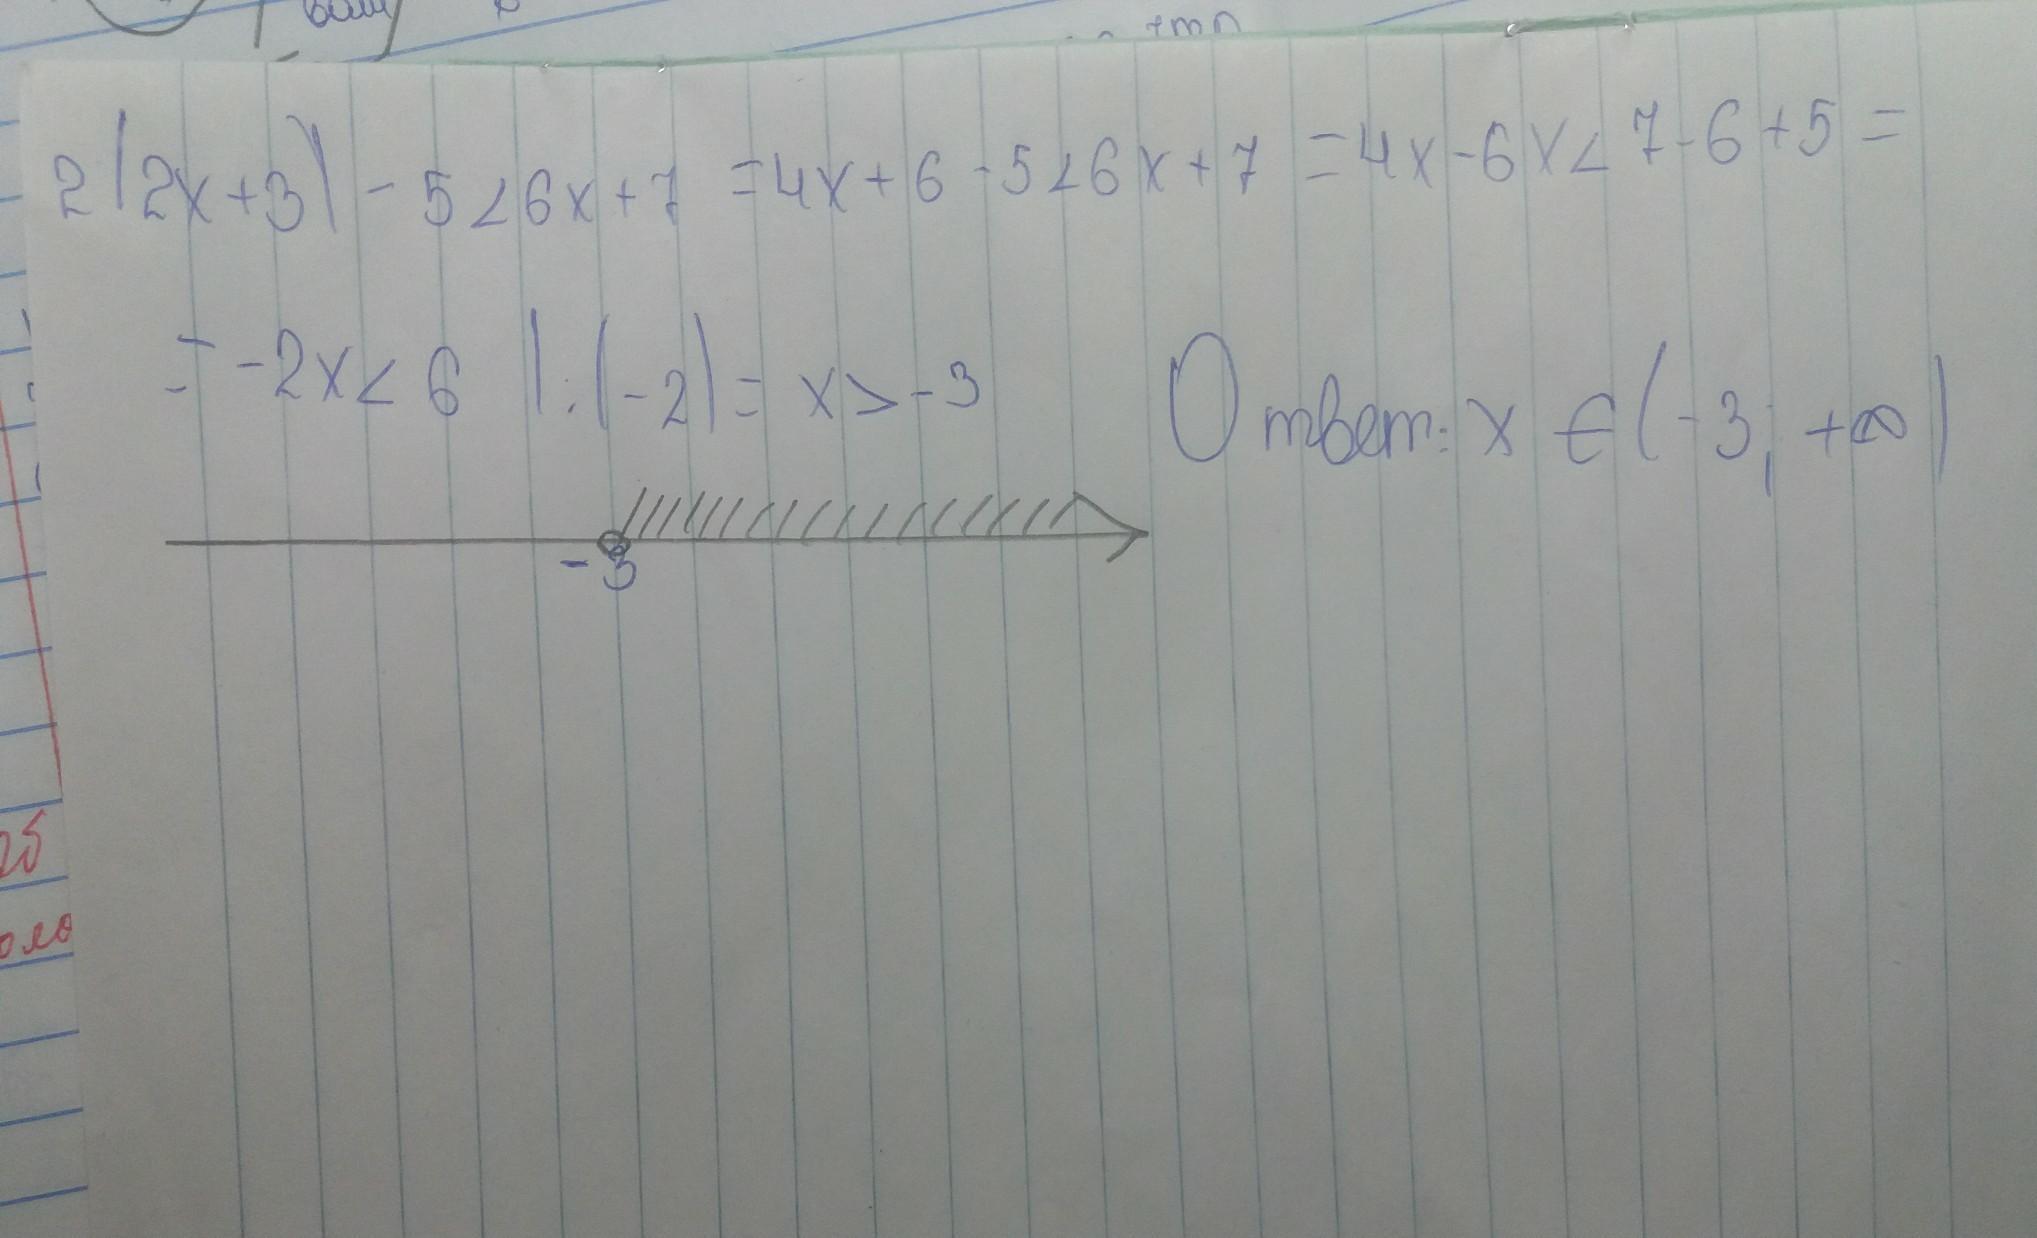 2(2x+3)-5<6x+7 =4x+6-5<6x+7 =4x-6x<7-6+5=
=-2x<6 |:(-2)= x>-3 Ответ: x∈(-3; +∞)
-3